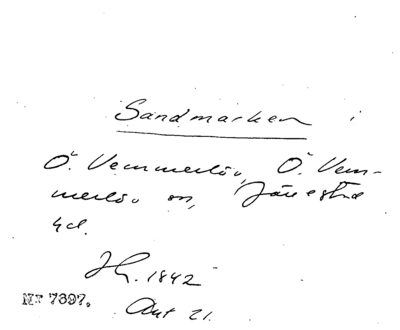 Sandmarken i
Ö. Vemmerlöv, Ö. Vem-
merlöv sn, Järrestad
hd.
1842
Nr 7397.
Akt 21.